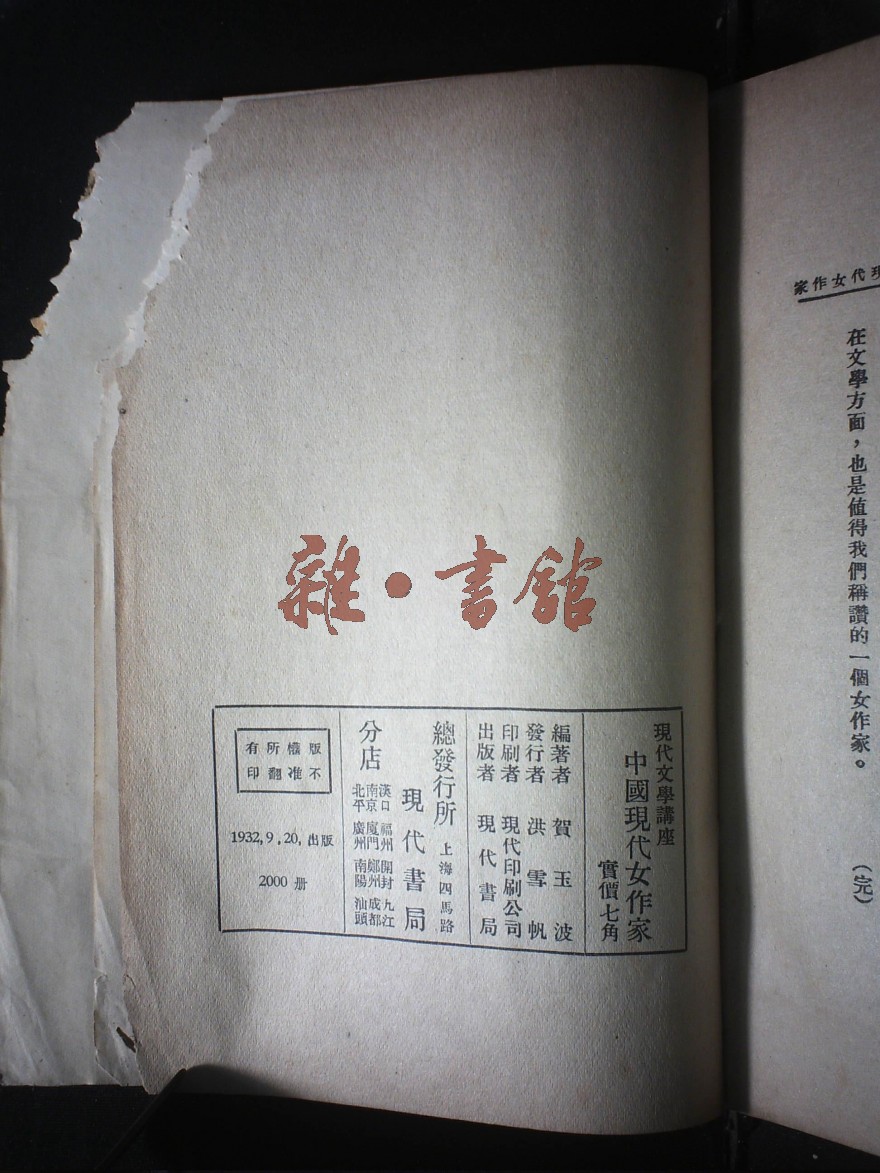 現代女作家
在文學方面，也是値得我們稱讚的一個女作家。
（完）
雜·書館
現代文學講座
中國現代女作家
實價七角
編著者 賀玉波
發行者 洪雪帆
印刷者 現代印刷公司
出版者 現代書局
總發行所 上海四馬路
現代書局
分店
漢口 福州 開封 九江
南京 廈門 鄭州 成都
北平 廣州 南陽 汕頭
版權所有
不准翻印
1932,9,20,出版
2000 册